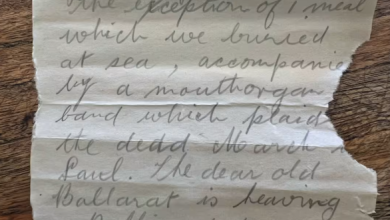 the exception of 1 meal
which we buried
at sea, accompanie
by a mouthorgan
band which plaid
the dedd March
Saul. The dear old
Ballarat is heaving